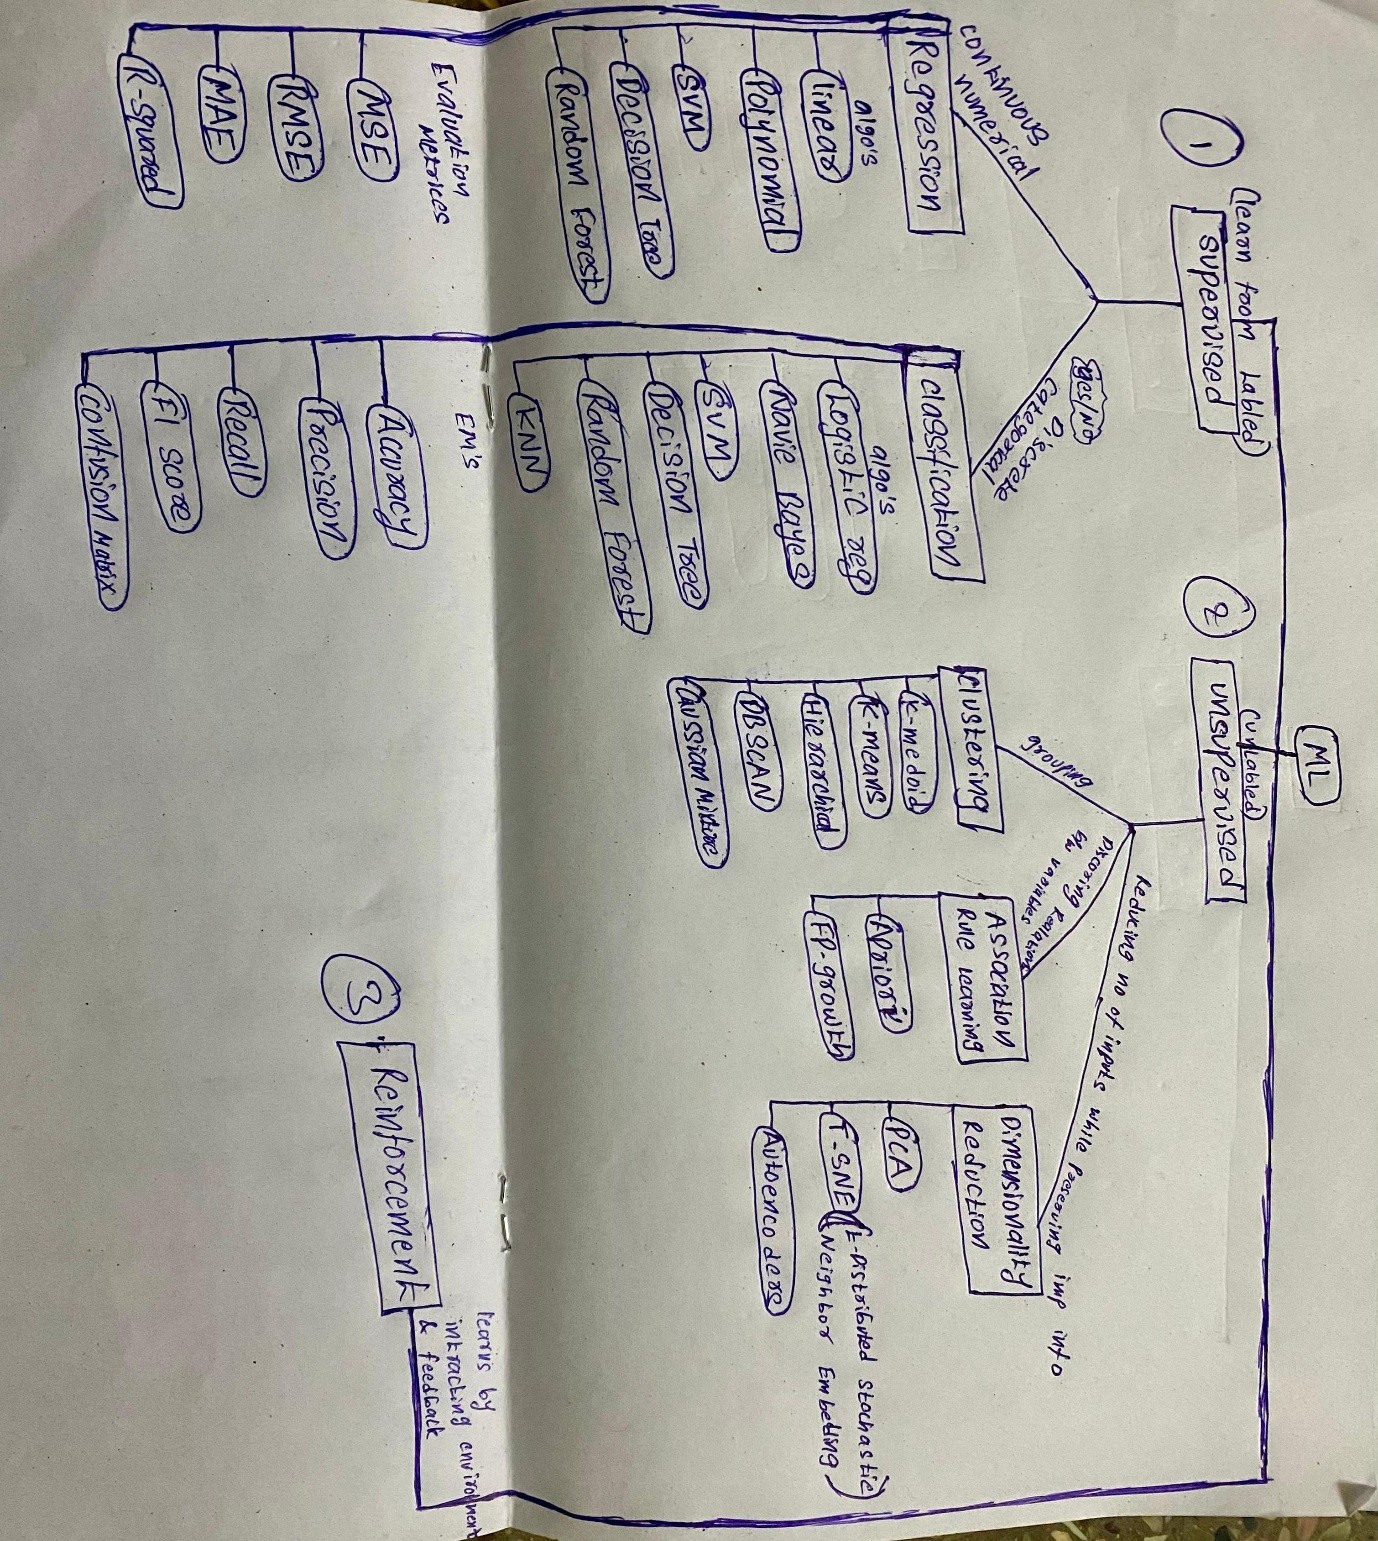 ML
(learn from Labled)
1
Supervised
(unlabled)
2
unsupervised
continuous
numerical
yes/No
Discrete
categorical
Regression
algo's
linear
Polynomial
SVM
Decision Tree
Random Forest
Evaluation
Metrices
MSE
RMSE
MAE
R-squared
classification
algo's
Logistic reg
Navie Bayes
SVM
Decision Tree
Random Forest
KNN
EM's
Accuracy
Precision
Recall
F1 score
confusion Matrix
grouping
clustering
K-medoid
K-means
Hierarchical
DBSCAN
Gaussian Mixture
Discoring Realation
b/w variables
Assocation
Rule Learning
Apriori
FP-growth
Reducing no of inputs while Preserving imp info
Dimensionality
Reduction
PCA
T-SNE (t-Distributed stochastic
Neighbor Embedding)
Autoencoders
learns by
intracting enviroment
& feedback
3
Reinforcement